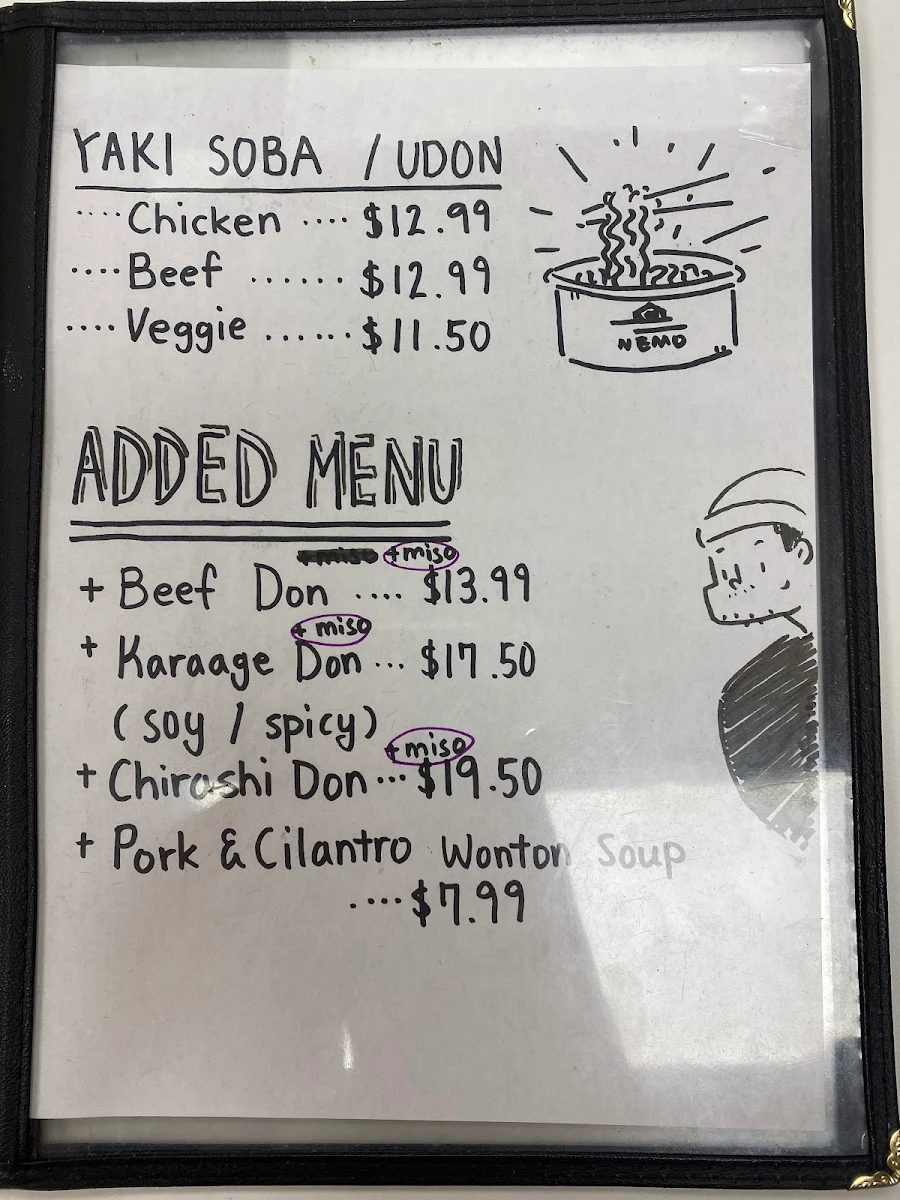 YAKI SOBA / UDON
.... Chicken .... $12.99
.... Beef ....... $12.99
.... Veggie ...... $11.50
NEMO
ADDED MENU
+miso +miso
+ Beef Don .... $13.99
+ miso
+ Karaage Don ... $17.50
( soy / spicy )
+miso
+ Chirashi Don ... $19.50
+ Pork & Cilantro Wonton Soup
.... $7.99